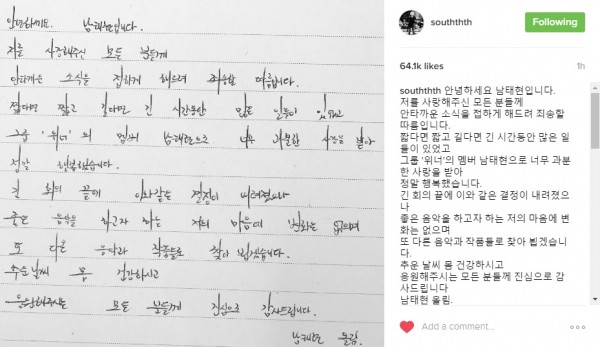 안녕하세요. 남태현입니다.
저를 사랑해주신 모든 분들께
안타까운 소식을 접하게 해드려 죄송할 따름입니다.
짧다면 짧고 길다면 긴 시간동안 많은 일들이 있었고
그룹 '위너'의 멤버 남태현으로 너무 과분한 사랑을 받아
정말 행복했습니다.
긴 회의 끝에 이와같은 결정이 내려졌으나
좋은 음악을 하고자 하는 저의 마음에 변화는 없으며
또 다른 음악과 작품들로 찾아 뵙겠습니다.
추운날씨 몸 건강하시고
응원해주시는 모든 분들께 진심으로 감사드립니다.
남태현 올림.
southth
Following
64.1k likes
1h
southth 안녕하세요 남태현입니다.
저를 사랑해주신 모든 분들께
안타까운 소식을 접하게 해드려 죄송할
따름입니다.
짧다면 짧고 길다면 긴 시간동안 많은 일
들이 있었고
그룹 '위너'의 멤버 남태현으로 너무 과분
한 사랑을 받아
정말 행복했습니다.
긴 회의 끝에 이와 같은 결정이 내려졌으
나
좋은 음악을 하고자 하는 저의 마음에 변
화는 없으며
또 다른 음악과 작품들로 찾아 뵙겠습니
다.
추운 날씨 몸 건강하시고
응원해주시는 모든 분들께 진심으로 감
사드립니다
남태현 올림.
Add a comment...